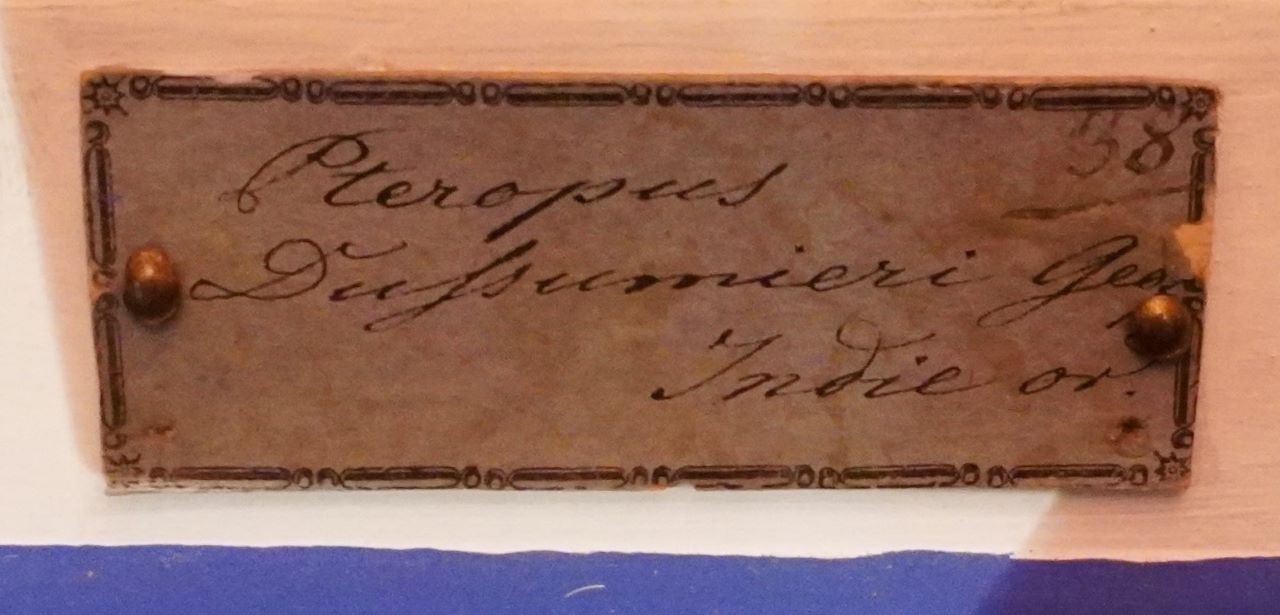 58
Pteropus
Dufsumieri Geo
Indie or.